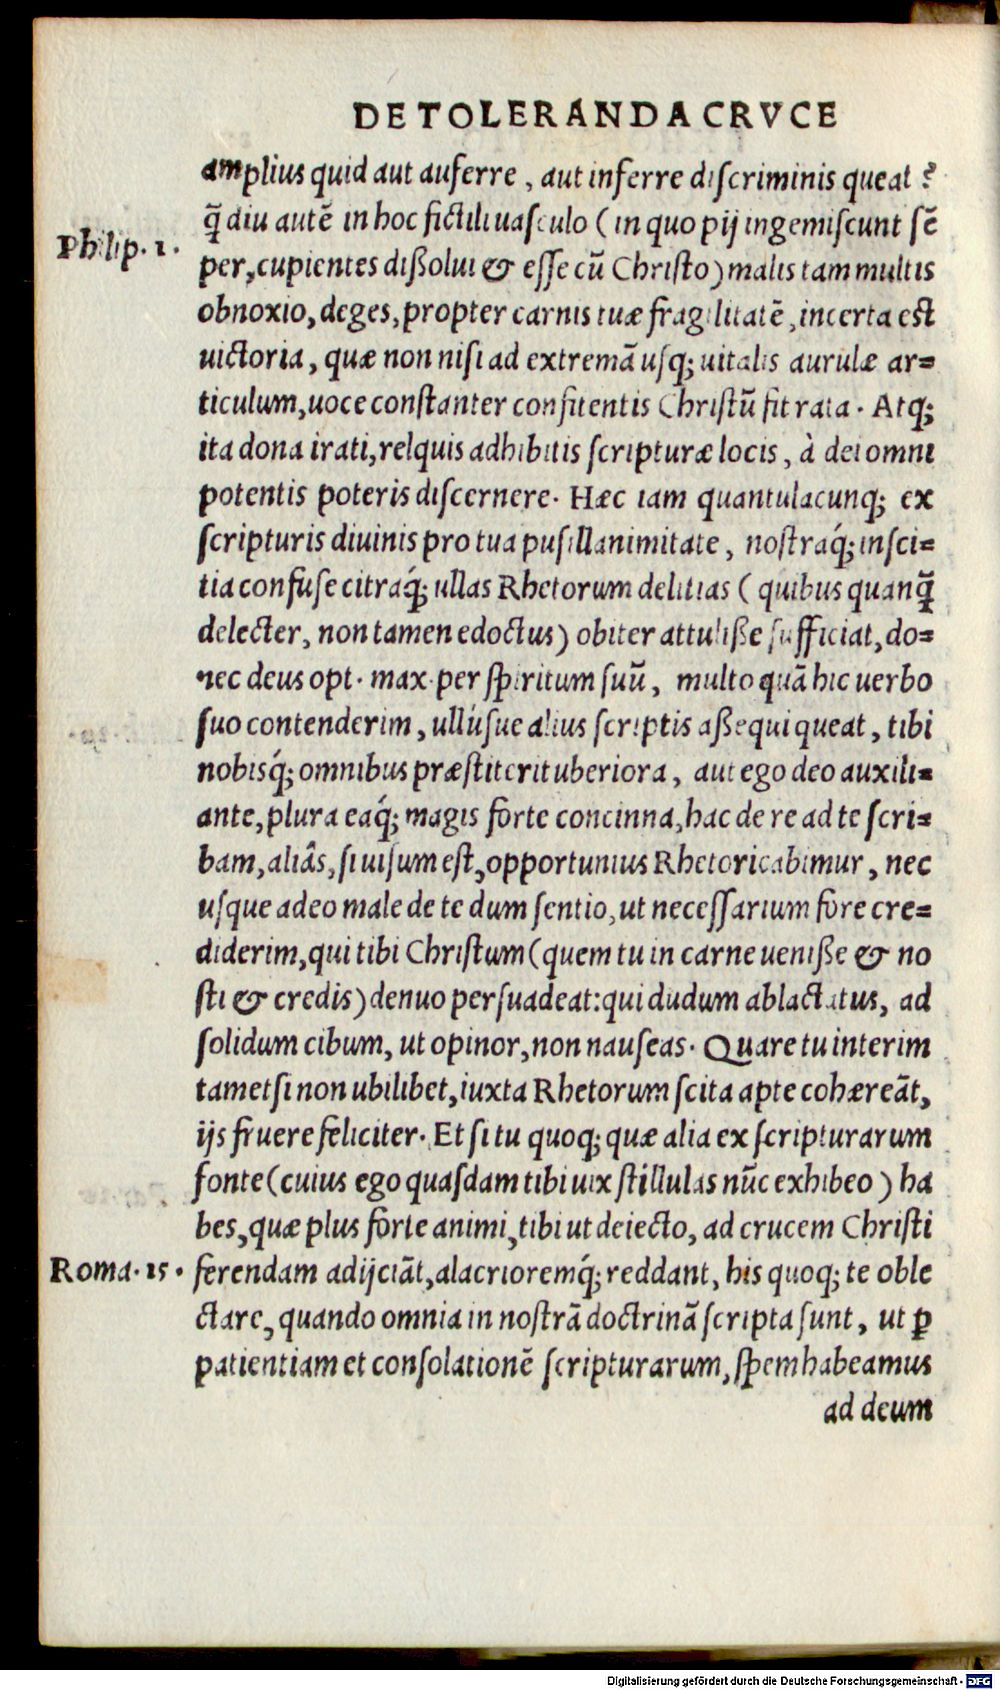 DE TOLERANDA CRVCE
amplius quid aut auferre, aut inferre discriminis queat?
q̃ diu autē in hoc fictili uasculo (in quo pij ingemiscunt sē
Philip. 1.
per, cupientes dißolui & esse cū Christo) malis tam multis
obnoxio, deges, propter carnis tuæ fragilitatē, incerta est
uictoria, quæ non nisi ad extremā usq; uitalis aurulæ ar=
ticulum, uoce constanter confitentis Christū fit rata. Atq;
ita dona irati, relquis adhibitis scripturæ locis, à dei omni
potentis poteris discernere. Hæc iam quantulacunq; ex
scripturis diuinis pro tua pusillanimitate, nostraq́; insci=
tia confuse citraq́; ullas Rhetorum delitias (quibus quanq̃
delecter, non tamen edoctus) obiter attuliße sufficiat, do=
nec deus opt. max. per spiritum suū, multo quā hic uerbo
suo contenderim, ullúsue alius scriptis aßequi queat, tibi
nobisq́; omnibus præstiterit uberiora, aut ego deo auxili=
ante, plura eaq́; magis forte concinna, hac de re ad te scri=
bam, aliâs, si uisum est, opportunius Rhetoricabimur, nec
usque adeo male de te dum sentio, ut necessarium fore cre=
diderim, qui tibi Christum (quem tu in carne ueniße & no
sti & credis) denuo persuadeat: qui dudum ablactatus, ad
solidum cibum, ut opinor, non nauseas. Quare tu interim
tametsi non ubilibet, iuxta Rhetorum scita apte cohæreāt,
ijs fruere feliciter. Et si tu quoq; quæ alia ex scripturarum
fonte (cuius ego quasdam tibi uix stillulas nūc exhibeo) ha
bes, quæ plus forte animi, tibi ut deiecto, ad crucem Christi
Roma. 15.
ferendam adijciāt, alacrioremq́; reddant, his quoq; te oble
ctare, quando omnia in nostrā doctrinā scripta sunt, ut ꝑ
patientiam et consolationē scripturarum, spem habeamus
ad deum
Digitalisierung gefördert durch die Deutsche Forschungsgemeinschaft - DFG